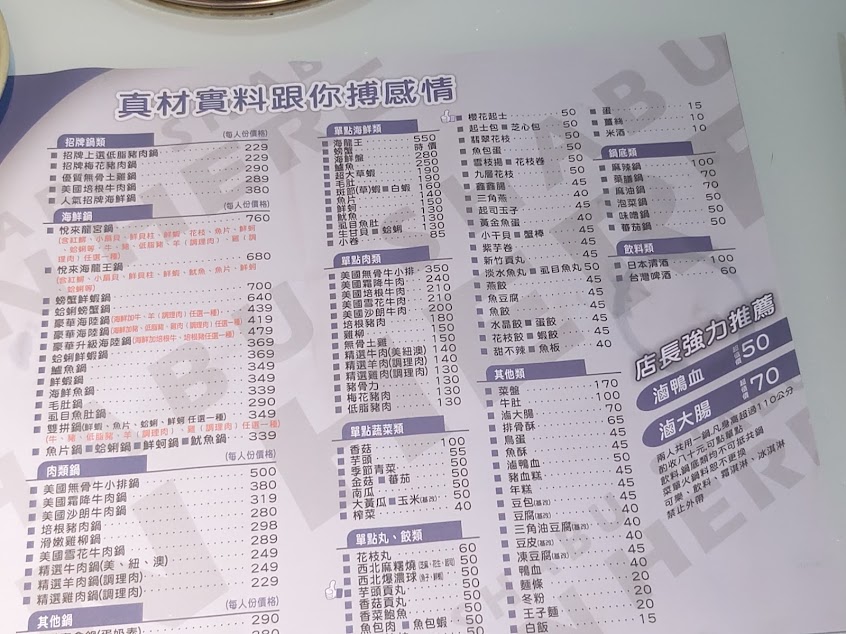 真材實料跟你搏感情
招牌鍋類 (每人份價格)
招牌上選低脂豬肉鍋 229
招牌梅花豬肉鍋 229
優質無骨土雞鍋 289
美國培根牛肉鍋 289
人氣招牌海鮮鍋 380
海鮮鍋 (每人份價格)
悅來龍宮鍋 760
悅來海龍王鍋 680
螃蟹鮮蝦鍋 700
蛤蜊螃蟹鍋 640
豪華海陸鍋(海鮮加牛、羊(調理肉)任選一種) 439
豪華海陸鍋(海鮮加豬、低脂豬、雞(調理肉)任選一種) 419
豪華升級海陸鍋(海鮮加培根牛、培根豬任選一種) 479
蛤蜊鮮蝦鍋 369
鱸魚鍋 369
鮮蝦鍋 349
海鮮鍋 349
毛肚鍋 339
虱目魚肚鍋 290
雙拼鍋(鮮蝦、魚片、蛤蜊、鮮蚵任選一種) 349
(牛、豬、低脂豬、羊(調理肉)、雞(調理肉)任選一種) 349
魚片鍋 蛤蜊鍋 鮮蚵鍋 魷魚鍋 339
肉類鍋 (每人份價格)
美國無骨牛小排鍋 500
美國霜降牛肉鍋 380
美國沙朗牛肉鍋 319
培根豬肉鍋 280
滑嫩雞肉鍋 298
美國雪花牛肉鍋 289
精選牛肉鍋(美、紐、澳) 249
精選羊肉鍋(調理肉) 249
精選雞肉鍋(調理肉) 229
其他鍋 (每人份價格)
290
280
單點海鮮類
海龍王 550
螃蟹 時價
海鮮盤 280
鱸魚 250
超大草蝦 190
毛肚 190
斑節(草)蝦 白蝦 160
魚片 140
鮮蚵 130
魷魚 130
虱目魚肚 130
生干貝 蛤蜊 130
小卷 85
單點肉類
美國無骨牛小排 350
美國霜降牛肉 240
美國培根牛肉 210
美國雪花牛肉 210
美國沙朗牛肉 200
培根豬肉 180
雞柳 150
無骨土雞 150
精選牛肉(美紐澳) 140
精選羊肉(調理肉) 140
精選雞肉(調理肉) 130
豬骨力 130
梅花豬肉 130
低脂豬肉 130
單點蔬菜類
香菇 100
芋頭 55
季節青菜 50
金菇 番茄 50
南瓜 50
大黃瓜 玉米(基改) 50
榨菜 40
單點丸、餃類
花枝丸 60
西北麻糬燒(芝麻、花生、起司) 50
西北爆漿球(魚子、鮮蝦) 50
芋頭貢丸 50
香菇貢丸 50
香菜鮑魚 50
魚包肉 魚包蝦 50
櫻花起士 50
起士包 芝心包 50
翡翠花枝 50
魚包蛋 50
雪枝揚 花枝卷 50
九層花枝 50
鑫鑫腸 45
三角燕 40
起司玉子 45
黃金魚蛋 40
小干貝 蟹棒 45
紫芋卷 45
新竹貢丸 45
淡水魚丸 虱目魚丸 50
燕餃 45
魚豆腐 45
魚餃 40
水晶餃 蛋餃 40
花枝餃 蝦餃 40
甜不辣 魚板 40
其他類
菜盤 170
牛肚 100
滷大腸 70
排骨酥 65
鳥蛋 45
魚酥 45
滷鴨血 50
豬血糕 45
年糕 45
豆包(基改) 45
豆腐(基改) 40
三角油豆腐(基改) 40
豆皮(基改) 40
凍豆腐(基改) 45
鴨血 40
麵條 20
冬粉 20
王子麵 20
白飯 15
蛋 15
薑絲 10
米酒 10
鍋底類
麻辣鍋 100
藥膳鍋 70
麻油鍋 70
泡菜鍋 50
味噌鍋 50
蕃茄鍋 50
飲料類
日本清酒 100
台灣啤酒 60
店長強力推薦
滷鴨血 超值價 50
滷大腸 超值價 70
兩人共用一鍋,凡身高超過110公分
酌收八十元可點單點
飲料,鍋底類均不可抵共鍋
菜單火鍋料恕不更換
可樂、飲料、霜淇淋、冰淇淋
禁止外帶